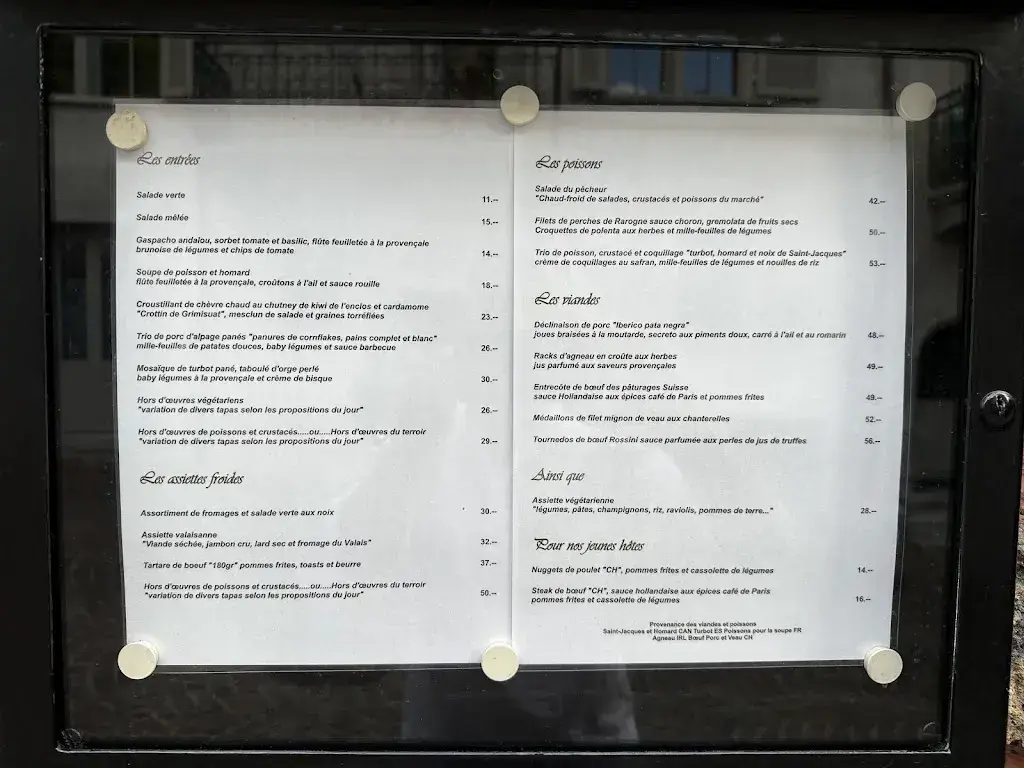 Les entrées
Salade verte 11.--
Salade mêlée 15.--
Gaspacho andalou, sorbet tomate et basilic, flûte feuilletée à la provençale
brunoise de légumes et chips de tomate 14.--
Soupe de poisson et homard
flûte feuilletée à la provençale, croûtons à l'ail et sauce rouille 18.--
Croustillant de chèvre chaud au chutney de kiwi de l'enclos et cardamome
"Crottin de Grimisuat", mesclun de salade et graines torréfiées 23.--
Trio de porc d'alpage panés "panures de cornflakes, pains complet et blanc"
mille-feuilles de patates douces, baby légumes et sauce barbecue 26.--
Mosaïque de turbot pané, taboulé d'orge perlé
baby légumes à la provençale et crème de bisque 30.--
Hors d'œuvres végétariens
"variation de divers tapas selon les propositions du jour" 26.--
Hors d'œuvres de poissons et crustacés.....ou.....Hors d'œuvres du terroir
"variation de divers tapas selon les propositions du jour" 29.--
Les assiettes froides
Assortiment de fromages et salade verte aux noix 30.--
Assiette valaisanne
"Viande séchée, jambon cru, lard sec et fromage du Valais" 32.--
Tartare de boeuf "180gr" pommes frites, toasts et beurre 37.--
Hors d'œuvres de poissons et crustacés.....ou.....Hors d'œuvres du terroir
"variation de divers tapas selon les propositions du jour" 50.--
Les poissons
Salade du pêcheur
"Chaud-froid de salades, crustacés et poissons du marché" 42.--
Filets de perches de Rarogne sauce choron, gremolata de fruits secs
Croquettes de polenta aux herbes et mille-feuilles de légumes 50.--
Trio de poisson, crustacé et coquillage "turbot, homard et noix de Saint-Jacques"
crème de coquillages au safran, mille-feuilles de légumes et nouilles de riz 53.--
Les viandes
Déclinaison de porc "Iberico pata negra"
joues braisées à la moutarde, secreto aux piments doux, carré à l'ail et au romarin 48.--
Racks d'agneau en croûte aux herbes
jus parfumé aux saveurs provençales 49.--
Entrecôte de bœuf des pâturages Suisse
sauce Hollandaise aux épices café de Paris et pommes frites 49.--
Médaillons de filet mignon de veau aux chanterelles 52.--
Tournedos de bœuf Rossini sauce parfumée aux perles de jus de truffes 56.--
Ainsi que
Assiette végétarienne
"légumes, pâtes, champignons, riz, raviolis, pommes de terre..." 28.--
Pour nos jeunes hôtes
Nuggets de poulet "CH", pommes frites et cassolette de légumes 14.--
Steak de bœuf "CH", sauce hollandaise aux épices café de Paris
pommes frites et cassolette de légumes 16.--
Provenance des viandes et poissons
Saint-Jacques et Homard CAN Turbot ES Poissons pour la soupe FR
Agneau IRL Bœuf Porc et Veau CH